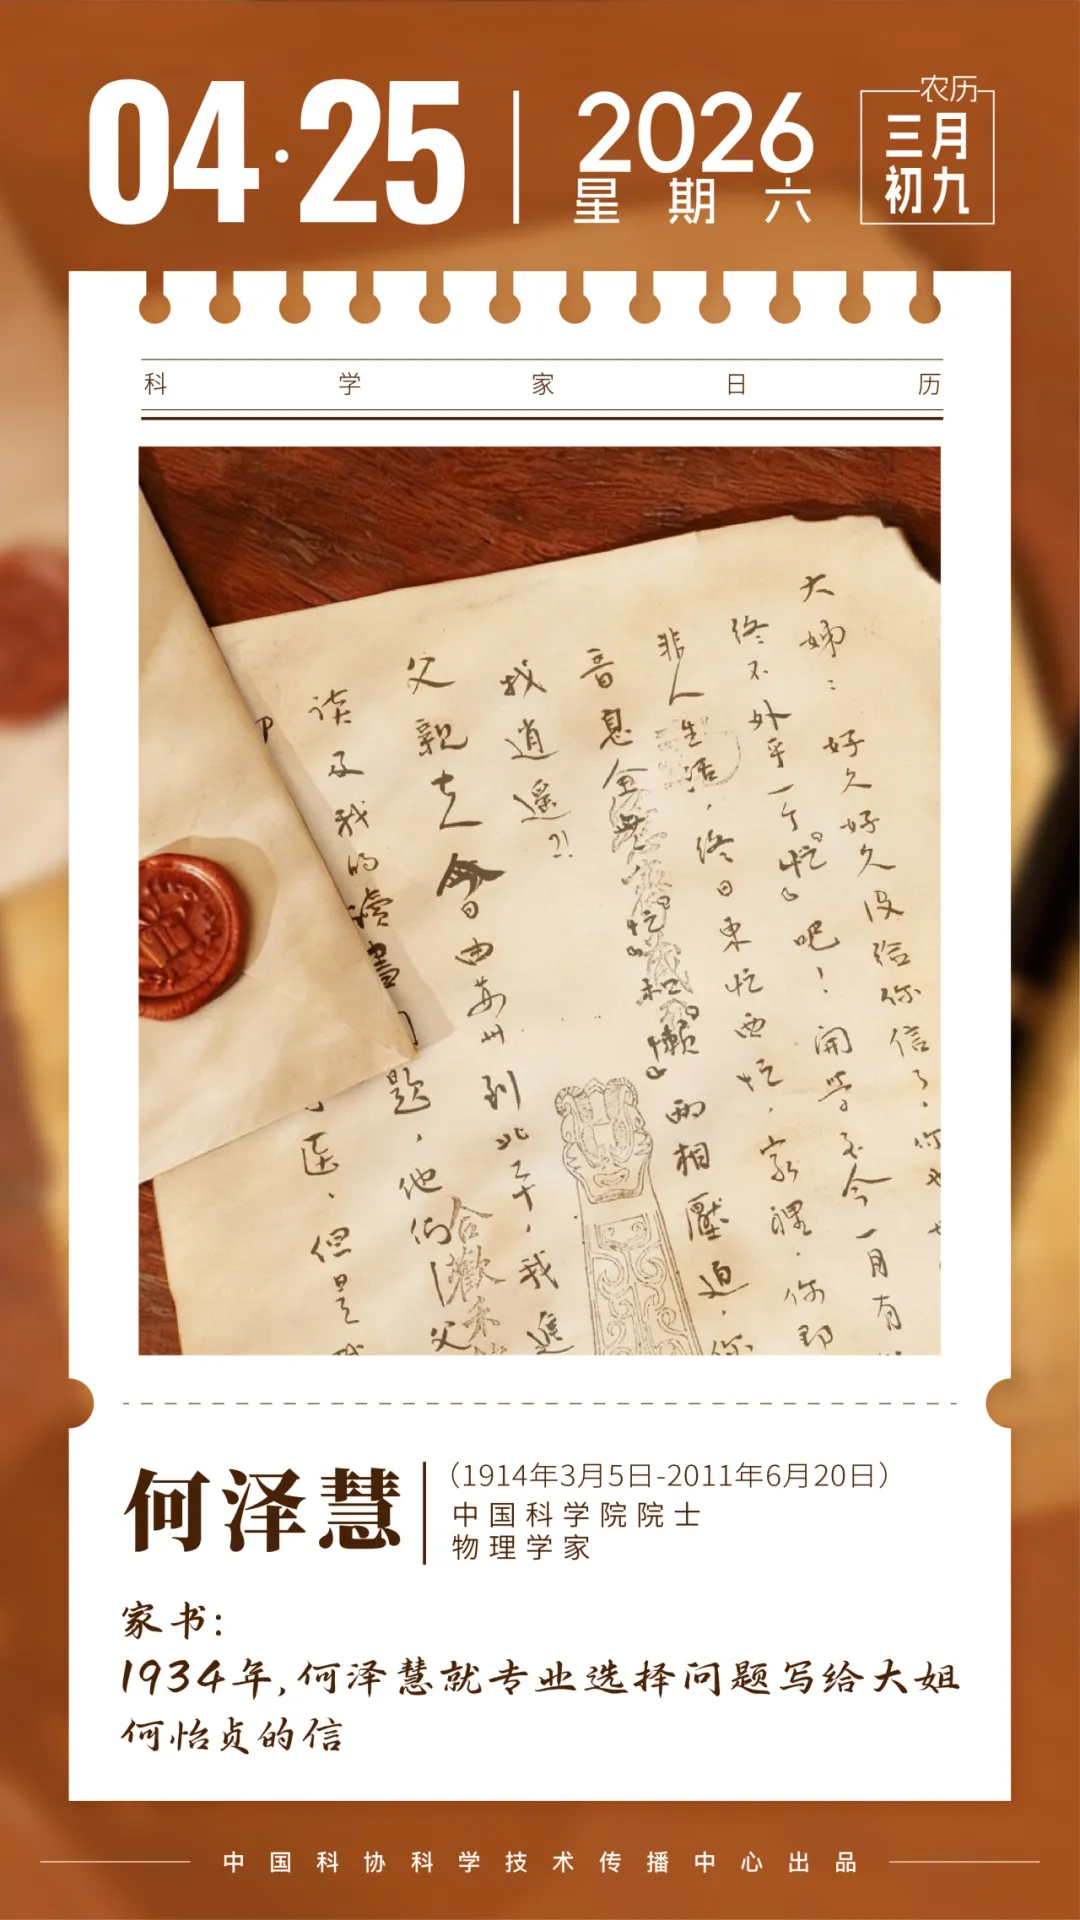 04·25
2026
星期六
农历
三月
初九
科学家日历
大姊：好久好久没给你信了，你
终不外乎一个『忙』吧！開学至今一月有
非人生活，终日東忙西忙，家裡，你
音息全無『忙』和『懒』兩相壓迫，你
找逍遥?!
父親大人會由蘇州到北平，我進
谈及我的讀書问题，他们
医，但是我
何泽慧
（1914年3月5日-2011年6月20日）
中国科学院院士
物理学家
家书：
1934年,何泽慧就专业选择问题写给大姐
何怡贞的信
中国科协科学技术传播中心出品